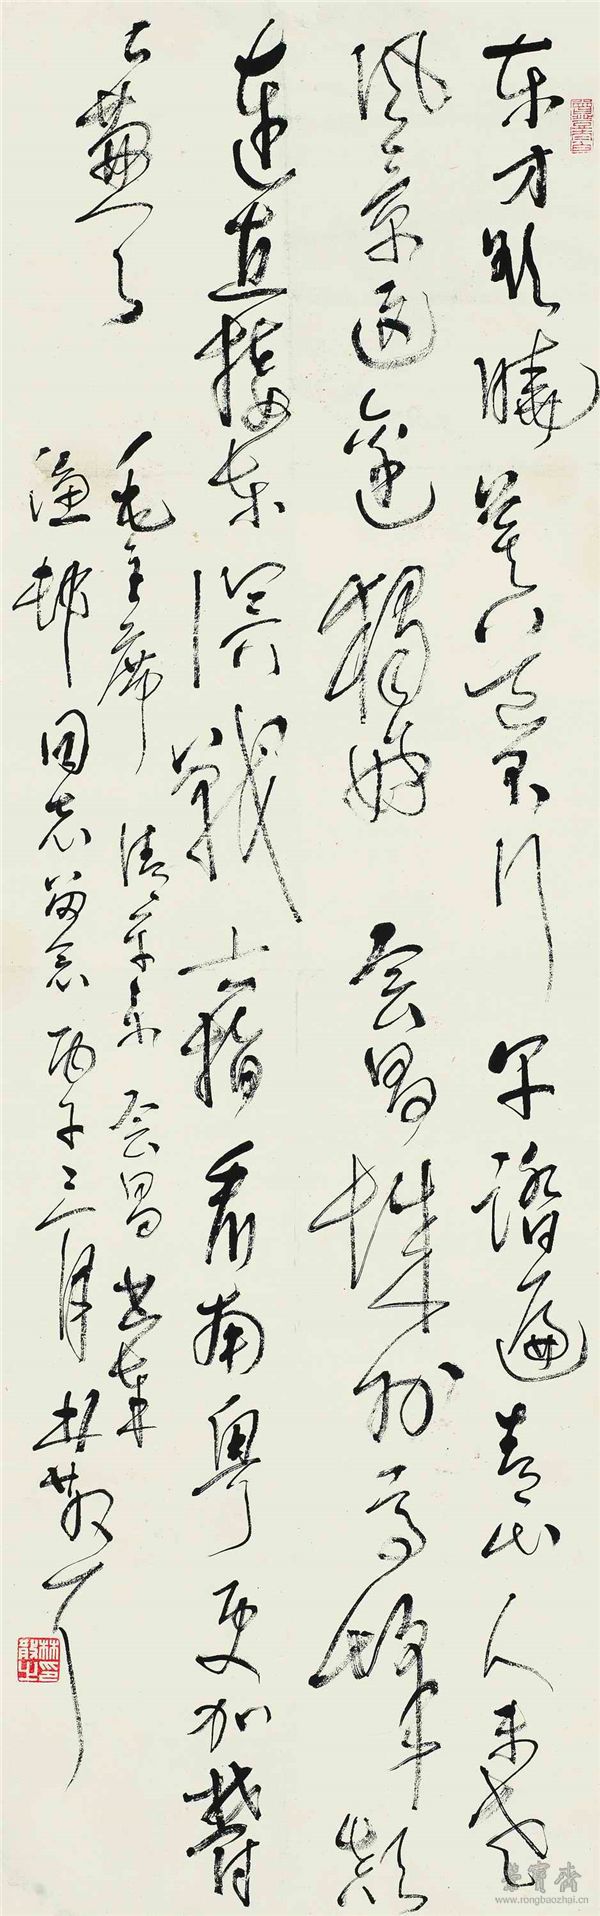 东方欲晓莫道君行早踏遍青山人未老
风景这边独好会昌城外高峰颠
连直接东溟战士指看南粤更加郁
々葱々
毛主席清平乐会昌书奉
邨同志留念丙三月林散耳
林散之印
荣宝斋
www.rongbaozhai.cn